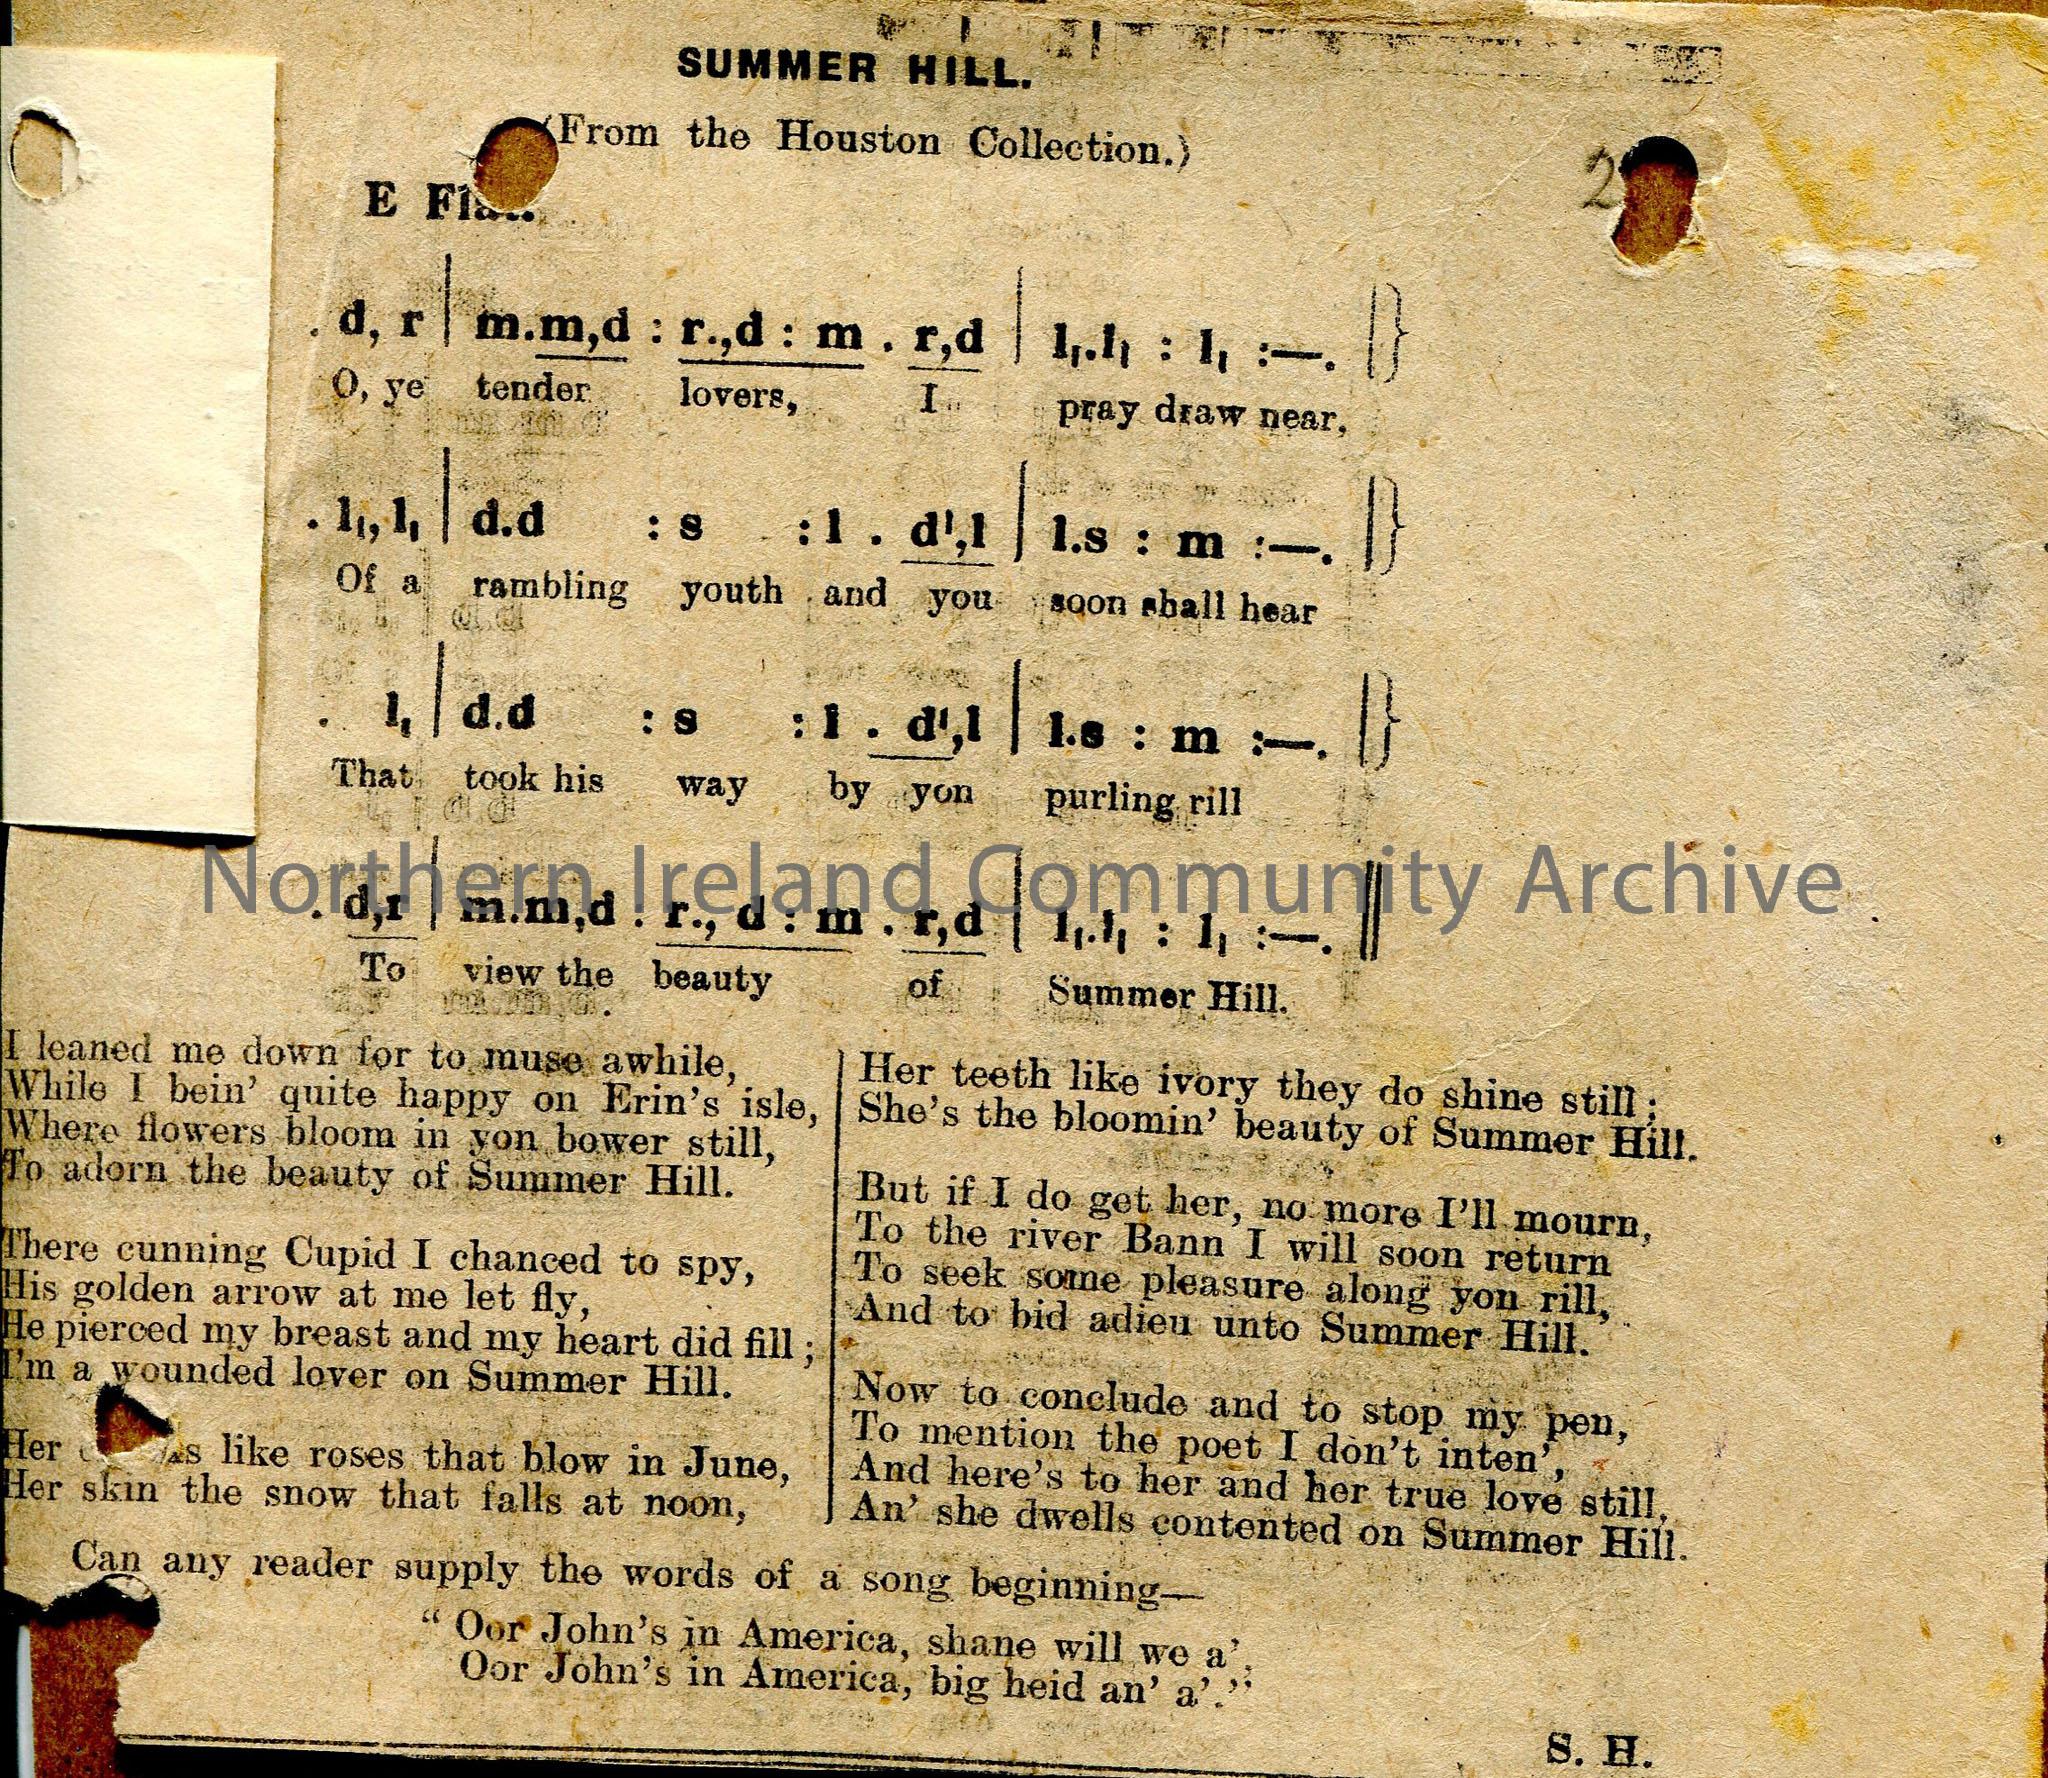 SUMMER HILL.
(From the Houston Collection.)
2
E Flat.
. d, r | m.m,d : r.,d : m . r,d | l₁.l₁ : l₁ :—. |}
O, ye tender lovers, I pray draw near,
. l₁, l₁ | d.d : s : l . d',l | l.s : m :—. |}
Of a rambling youth and you soon shall hear
. l₁ | d.d : s : l . d',l | l.s : m :—. |}
That took his way by yon purling rill
Northern Ireland Community Archive
. d,r | m.m,d : r., d : m . r,d | l₁.l₁ : l₁ :—. ||
To view the beauty of Summer Hill.
I leaned me down for to muse awhile,
While I bein' quite happy on Erin's isle,
Where flowers bloom in yon bower still,
To adorn the beauty of Summer Hill.
There cunning Cupid I chanced to spy,
His golden arrow at me let fly,
He pierced my breast and my heart did fill;
I'm a wounded lover on Summer Hill.
Her like roses that blow in June,
Her skin the snow that falls at noon,
Her teeth like ivory they do shine still;
She's the bloomin' beauty of Summer Hill.
But if I do get her, no more I'll mourn,
To the river Bann I will soon return
To seek some pleasure along yon rill,
And to bid adieu unto Summer Hill.
Now to conclude and to stop my pen,
To mention the poet I don't inten',
And here's to her and her true love still,
An' she dwells contented on Summer Hill.
Can any reader supply the words of a song beginning—
"Oor John's in America, shane will we a',
Oor John's in America, big heid an' a'."
S. H.